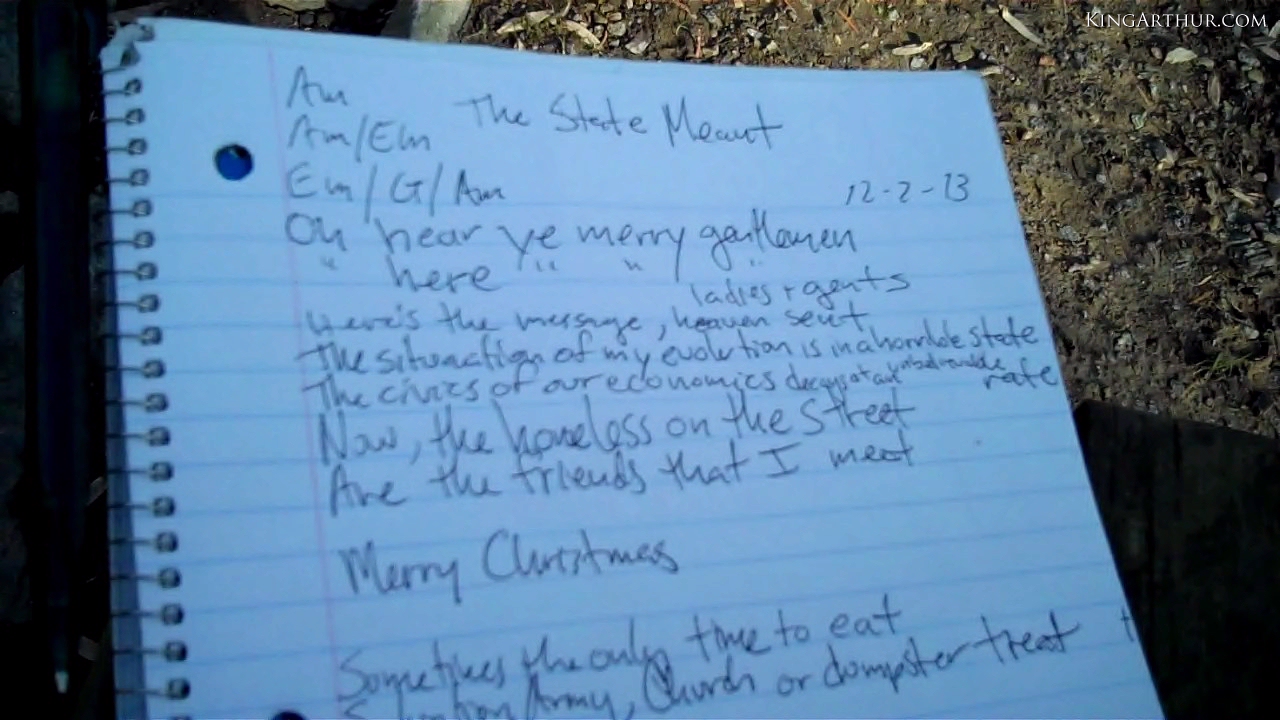 KINGARTHUR.COM
Am
The State Meant
Am/Em
Em/G/Am
12-2-13
Oh hear ye merry gentlemen
" here " " "
ladies + gents
Here's the message, heaven sent
The situmation of my evolution is in a horrible state
The civics of our economics decays at an rate
Now, the homeless on the street
Are the friends that I meet
Merry Christmas
Sometimes the only time to eat
Salvation Army, Church or dumpster treat